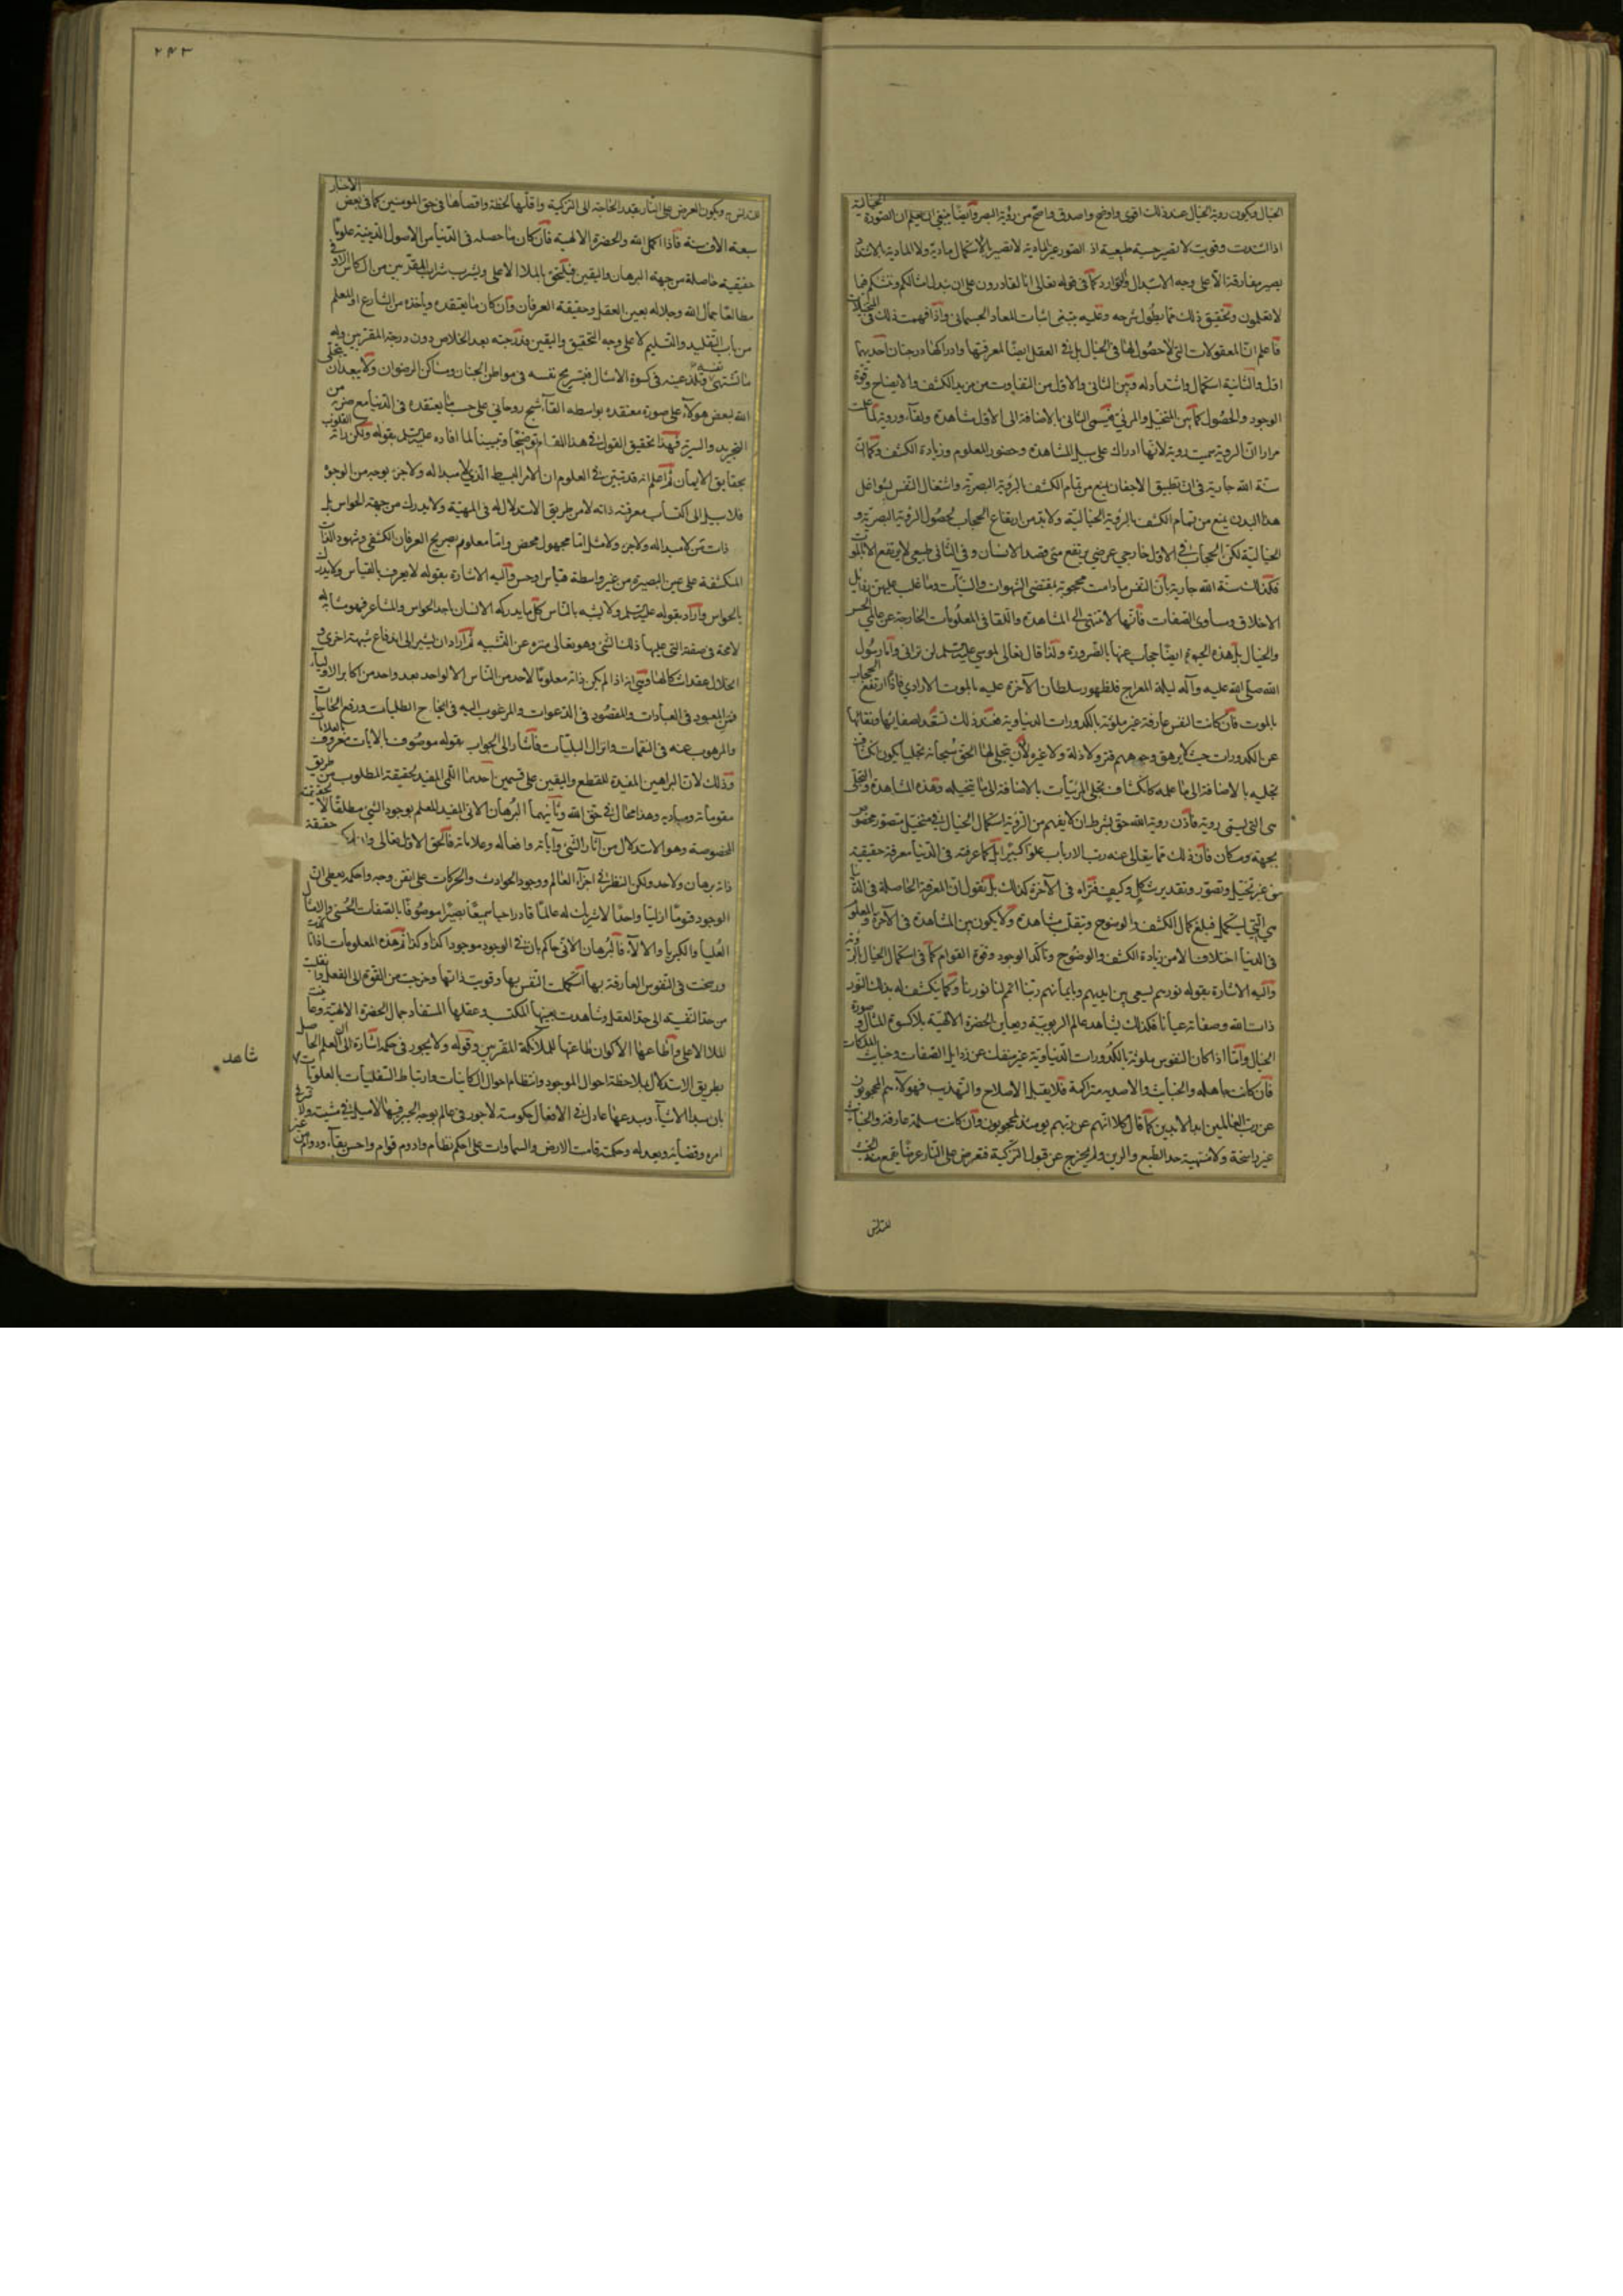 الخيال ويكون روية الخيال عند ذلك اقوى واوضح واصدق واصح من رؤية البصر وايضا ينبغي ان يعلم ان الصورة الخيالية
اذا اشتدت وقويت لا تصير حسية طبيعية اذ الصور غير المادية لا تصير بالاستكمال مادية ولا المادية بالاشتداد
يصير مفارقة الا على وجه الاستبدال والتوارد كما في قوله تعالى انا لقادرون على ان نبدل امثالكم وننشئكم فيما
لا تعلمون وتحقيق ذلك مما يطول شرحه وعليه يبتني اثبات المعاد الجسماني واذا فهمت ذلك في المتخيلات
فاعلم ان المعقولات التي لا حصول لها في الخيال بل في العقل ايضا لمعرفتها وادراكها درجتان احديهما
اقل والثانية استكمال واشتداد له وبين الثاني والاول من التفاوت من مزيد الكشف والايضاح وقوة
الوجود والحصول كما بين المتخيل والمرئي فيسمى الثاني بالاضافة الى الاول مشاهدة ولقاء وروية لما علمت
مرارا ان الروية سميت روية لانها ادراك على سبيل المشاهدة وحضور للمعلوم وزيادة الكشف وكما ان
سنة الله جارية في ان تطبيق الاجفان يمنع من تمام الكشف بالرؤية البصرية واشتغال النفس بشواغل
هذا البدن يمنع من تمام الكشف بالرؤية الخيالية ولا بد من ارتفاع الحجاب لحصول الرؤية البصرية و
الخيالية لكن الحجاب في الاول خارجي عرضي يرتفع متى قصد الانسان وفي الثاني طبيعي لا يرتفع الا بالموت
فكذلك سنة الله جارية بان النفس ما دامت محجوبة بمقتضى الشهوات والسيآت وما غلب عليهن رذايل
الاخلاق ومساوي الصفات فانها لا تنتهي الى المشاهدة واللقا في المعلومات الخارجة عن عالمي الحس
والخيال بل هذه الحيوة ايضا حجاب عنها بالضرورة ولذا قال تعالى لموسى عليه السلم لن تراني واما رسول
الله صلى الله عليه وآله ليلة المعراج فلظهور سلطان الآخرة عليه بالموت الارادي فاذا ارتفع الحجاب
بالموت فان كانت النفس عارفة غير ملوثة بالكدورات الدنياوية فعند ذلك تستعد لصفائها ونقائها
عن الكدورات حيث لا يرهق وجوههم قتر ولا ذلة ولا غبرة لان يتجلى لها الحق سبحانه تجليا يكون انكشاف
تجليه بالاضافة الى ما علمه كانكشاف تجلي المرئيات بالاضافة الى ما يتخيله وهذه المشاهدة والتجلي
هي التي يسمى روية فاذن روية الله حق بشرط ان لا يفهم من الرؤية استكمال الخيال في متخيل متصور مخصوص
بجهة ومكان فان ذلك مما يتعالى عنه رب الارباب علوا كبيرا بل كما عرفته في الدنيا معرفة حقيقية
من غير تخيل وتصور وتقدير شكل وكيف فتراه في الآخرة كذلك بل نقول ان المعرفة الحاصلة في الدنيا
هي التي تستكمل فيبلغ كمال الكشف والوضوح وتنقلب مشاهدة ولا يكون بين المشاهدة في الآخرة والمعلوم
في الدنيا اختلاف الا من زيادة الكشف والوضوح وتأكد الوجود وقوة القوام كما في استكمال الخيال بالرؤية
واليه الاشارة بقوله نورهم يسعى بين ايديهم وبايمانهم ربنا اتمم لنا نورنا وكما ينكشف له بذلك النور
ذات الله وصفاته عيانا فكذلك يشاهد عالم الربوبية ويعاين الحضرة الالهية بلا كسوة المثال وصورة
الخيال واما اذا كان النفوس ملوثة بالكدورات الدنياوية غير منفك عن رذايل الصفات وخبايث الملكات
فان كانت جاهلة والخبايث والاصدية متراكمة فلا يقبل الاصلاح والتهذيب فهولاء هم المحجوبون
عن رب العالمين ابد الابدين كما قال كلا انهم عن ربهم يومئذ لمحجوبون وان كانت مسلمة عارفة والخبايث
غير راسخة ولا منتهية حد الطبع والرين ولم يخرج عن قبول التزكية فتعرض على النار عرضا يقمع منه الخبث
للتدنس
٢٤٣
للتدنس ويكون العرض على النار بقدر الحاجة الى التزكية واقلها لحظة واقصاها في حق المومنين كما في بعض الاخبار
سبعة الاف سنة فاذا اكمل الله والحضرة الالهية فان كان ما حصله في الدنيا من الاصول الدينية علوما
حقيقية حاصلة من جهة البرهان واليقين فيلتحق بالملا الاعلى ويشرب شراب المقربين من الكاس الاوفى
مطالعا جمال الله وجلاله بعين العقل وحقيقة العرفان وان كان ما يعتقده وياخذه من الشارع او المعلم
من باب التقليد والتسليم لا على وجه التحقيق واليقين فدرجته بعد الخلاص دون درجة المقربين وله
ما تشتهي نفسه وتلذ عينه في كسوة الامثال فيسرح نفسه في مواطن الجنان ومساكن الرضوان ولا يبعد ان يتجلى
الله بعض هولاء على صورة معتقده بواسطة القآء شبح روحاني على حسب ما يعتقده في الدنيا مع ضرب من
التجريد والسرية فهذا تحقيق القول في هذا المقام توضيحا وتبيينا لما افاده عليه السلم بقوله ولكن راته القلوب
بحقايق الايمان ثم اعلم انه قد تبين في العلوم ان الامر البسيط الذي لا سبب له ولا جزء بوجه من الوجوه
فلا سبيل الى اكتساب معرفة ذاته لا من طريق الاستدلال له في المهية ولا يدرك من جهة الحواس بل
ذات من لا سبب له ولا جزء ولا مثل اما مجهول محض واما معلوم بصريح العرفان الكشفي وشهود الذات
المنكشفة على عين البصيرة من غير واسطة قياس او حس واليه الاشارة بقوله لا يعرف بالقياس ولا يدرك
بالحواس واراد بقوله عليه السلم ولا يشبه بالناس كل ما يدركه الانسان باحد الحواس والمشاعر فهو مشابه له
لا محة في صفته التي عليها ذلك الشئ وهو تعالى منزه عن التشبيه ثم اراد ان يشير الى اندفاع شبهة اخرى و
انحلال عقد اشكالها وهي انه اذا لم يكن بذاته معلوما لاحد من الناس الا لواحد بعد واحد من اكابر الاولياء
فمن المعبود في العبادات والمقصود في الدعوات والمرغوب اليه في انجاح الطلبات ورفع الحاجات
والمرهوب عنه في النقمات وانزال البليات فاشار الى الجواب بقوله موصوف بالايات معروف بالعلامات
وذلك لان البراهين المفيدة للقطع واليقين على قسمين احدهما اللمي المفيد لحقيقة المطلوب من طريق
مقوماته ومباديه وهذا محال في حق الله وثانيهما البرهان الاني المفيد للعلم بوجود الشئ مطلقا لا لحقيقته
المخصوصة وهو الاستدلال من آثار الشئ وآياته وافعاله وعلاماته فالحق الاول تعالى وان لم يكن على حقيقة
ذاته برهان ولا حد ولكن النظر في اجزاء العالم ووجود الحوادث والحركات على اتقن وجه واحكمه يعطي ان
الوجود قيوما ازليا واحدا لا شريك له عالما قادرا حيا سميعا بصيرا موصوفا بالصفات الحسنى والامثال
العليا والكبريا والالاء فالبرهان الاني حاكم بان في الوجود موجودا كذا وكذا ثم هذه المعلومات اذا تمكنت
ورسخت في النفوس العارفة بها استكملت النفس بها وقويت ذاتها وخرجت من القوة الى الفعل وانقلبت
من حد النفسية الى حد العقل وشاهدت بعينها المكتسب وعقلها المستفاد جمال الحضرة الالهية وعاينت
الملا الاعلى واطاعها الاكوان طاعتها للملائكة المقربين وقوله ولا يجور في حكمه اشارة الى ان العلم الحاصل
بطريق الاستدلال بملاحظة احوال الموجود وانتظام احوال الكاينات وارتباط السفليات بالعلويات
بان مبدا الاشياء ومبدعها عادل في الافعال حكومته لا جور في عالم بوجه الخير فيها
امره وقضائه وبعدله وحكمته قامت الارض والسماوات على احكم نظام وادوم قوام واحسن بقاء ودوام
شاهد